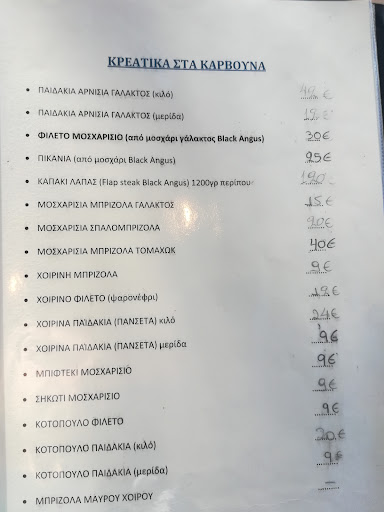 ΚΡΕΑΤΙΚΑ ΣΤΑ ΚΑΡΒΟΥΝΑ
• ΠΑΙΔΑΚΙΑ ΑΡΝΙΣΙΑ ΓΑΛΑΚΤΟΣ (κιλό)
• ΠΑΙΔΑΚΙΑ ΑΡΝΙΣΙΑ ΓΑΛΑΚΤΟΣ (μερίδα) 12€
• ΦΙΛΕΤΟ ΜΟΣΧΑΡΙΣΙΟ (από μοσχάρι γάλακτος Black Angus) 30€
• ΠΙΚΑΝΙΑ (από μοσχάρι Black Angus) 25€
• ΚΑΠΑΚΙ ΛΑΠΑΣ (Flap steak Black Angus) 1200γρ περίπου
• ΜΟΣΧΑΡΙΣΙΑ ΜΠΡΙΖΟΛΑ ΓΑΛΑΚΤΟΣ 15€
• ΜΟΣΧΑΡΙΣΙΑ ΣΠΑΛΟΜΠΡΙΖΟΛΑ 20€
• ΜΟΣΧΑΡΙΣΙΑ ΜΠΡΙΖΟΛΑ ΤΟΜΑΧΩΚ 40€
• ΧΟΙΡΙΝΗ ΜΠΡΙΖΟΛΑ 9€
• ΧΟΙΡΙΝΟ ΦΙΛΕΤΟ (ψαρονέφρι) 12€
• ΧΟΙΡΙΝΑ ΠΑΪΔΑΚΙΑ (ΠΑΝΣΕΤΑ) κιλό 24€
• ΧΟΙΡΙΝΑ ΠΑΪΔΑΚΙΑ (ΠΑΝΣΕΤΑ) μερίδα 9€
• ΜΠΙΦΤΕΚΙ ΜΟΣΧΑΡΙΣΙΟ 9€
• ΣΗΚΩΤΙ ΜΟΣΧΑΡΙΣΙΟ 9€
• ΚΟΤΟΠΟΥΛΟ ΦΙΛΕΤΟ 9€
• ΚΟΤΟΠΟΥΛΟ ΠΑΙΔΑΚΙΑ (κιλό) 20€
• ΚΟΤΟΠΟΥΛΟ ΠΑΙΔΑΚΙΑ (μερίδα) 9€
• ΜΠΡΙΖΟΛΑ ΜΑΥΡΟΥ ΧΟΙΡΟΥ –